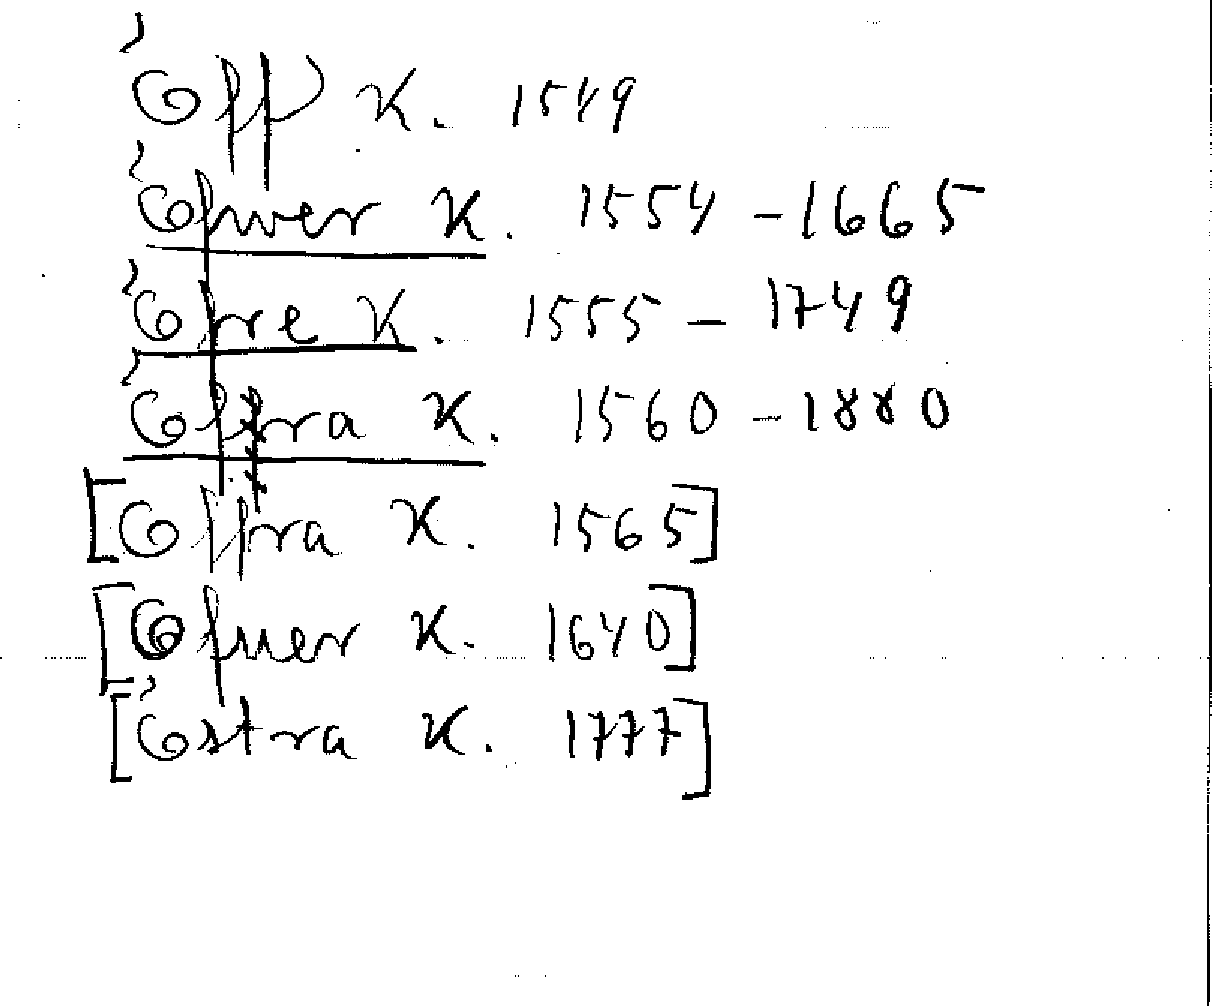 Öff K. 1549
Öfwer K. 1554 - 1665
Öfre K. 1555 - 1749
Öffra K. 1560 - 1880
[Offra K. 1565]
[Ofuer K. 1640]
[Östra K. 1777]